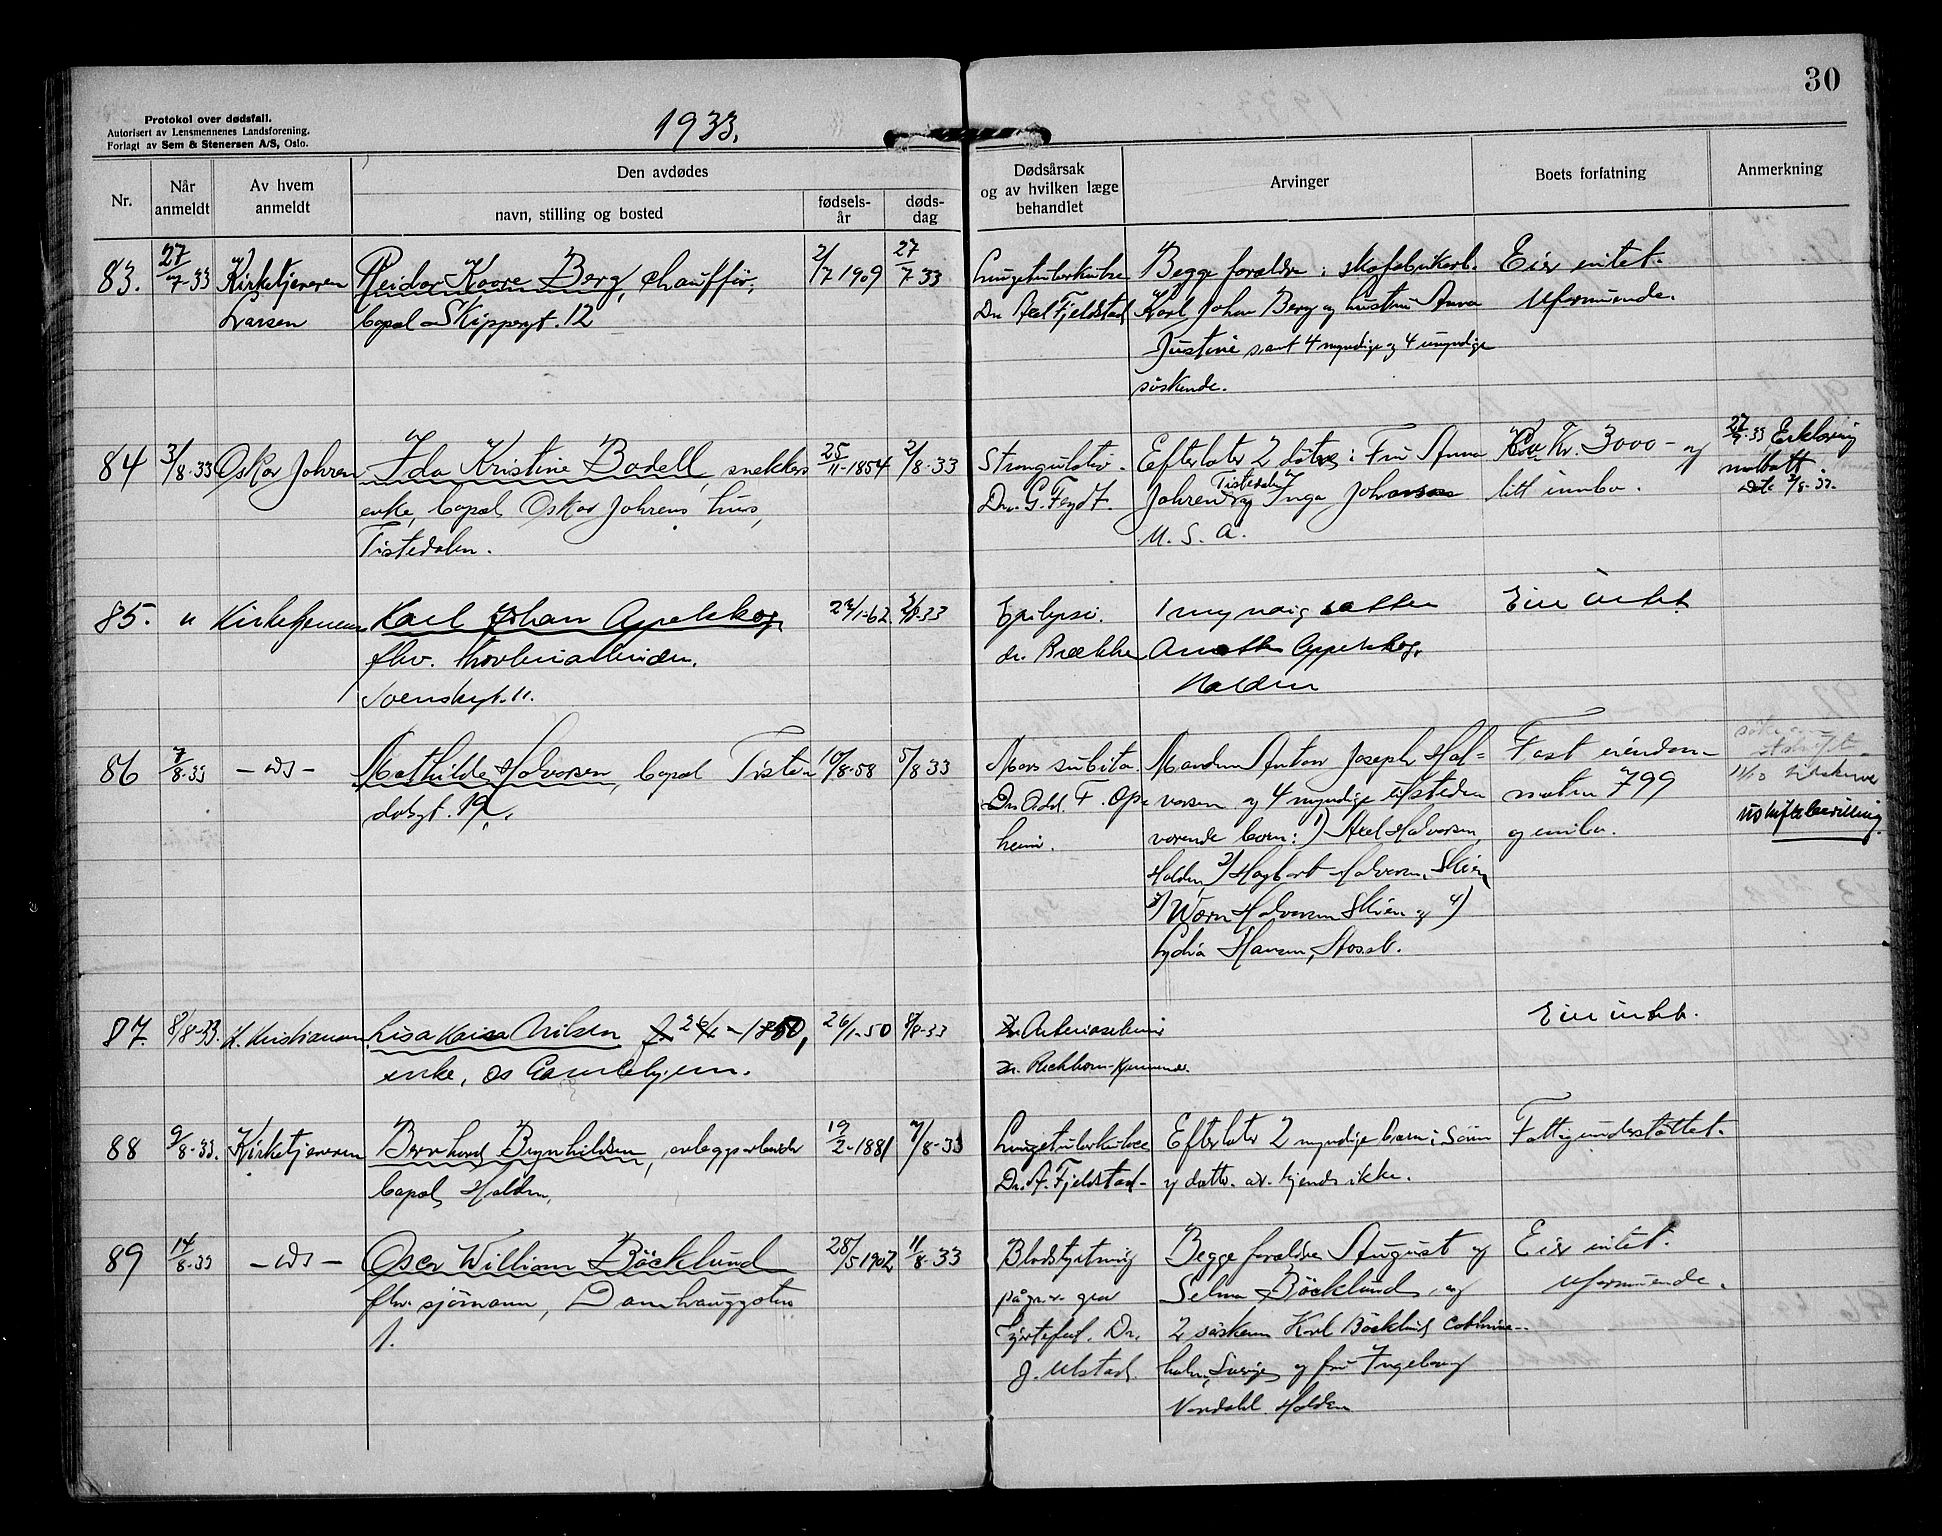 30
Protokol over dødsfall.
Autorisert av Lensmennenes Landsforening.
Forlagt av Sem & Stenersen A/S, Oslo.
1933.
Nr.
Når anmeldt
Av hvem anmeldt
Den avdødes
navn, stilling og bosted
fødsels-år
døds-dag
Dødsårsak og av hvilken læge behandlet
Arvinger
Boets forfatning
Anmerkning
83. 27/7-33 Kirketjeneren Reidar Kaare Berg, chauffør, 2/7 1909 27/7-33 Lungetuberkulose Begge forældre: skofabrikarb. Eier intet.
Larsen bopæl Skippergt. 12 Dr. Axel Fjeldstad Karl Johan Berg og hustru Anna Uformuende.
Justine samt 4 myndige og 4 umyndige
søskende.
84 3/8-33 Oskar Johren Ida Kristine Bodell, snekkers 25/11-1854 2/8-33 Strangulatio. Efterlater 2 døtre: Fru Anna Kr. 3000- og 27/9-33 Erklæring
enke, bopæl Oskar Johrens hus, Dr. G. Feydt. Johren Tistedalen og Inga Johansen litt innbo. mottatt.
Tistedalen. U. S. A. Dato 3/8-33.
85. " Kirketjeneren Karl Johan Appelskog, 22/1-62 3/8-33 Epilepsi. 1 myndig datter Eier intet
fhv. høvleriarbeider, dr. Brække Anette Appelskog,
Svenskegt. 11. Halden
86 7/8-33 -ds- Mathilde Halvorsen, bopæl Tiste- 10/8-58 5/8 33 Mors subita. Manden Anton Joseph Hal- Fast eiendom
dalsgt. 19. Dr. Add. F. Op- vorsen og 4 myndige tilstede- matr. 799
heim. værende barn: 1) Axel Halvorsen og innbo. uskiftebevilling.
Halden, 2) Hagbart Halvorsen, Skien
3) Halvorsen Skien og 4)
Lydia Hansen,
87. 8/8-33. K. Kristiansen Lisa Maisa Nilsen f. 26/1-1850, 26/1-50 8/8-33 Arteriosclerose Eier intet.
enke, Gamlehjem. Dr. Reichborn-Kjennerud.
88 9/8-33. Kirketjeneren Bernhard Brynhildsen, anleggsarbeider 19/2-1881 7/8-33 Lungetuberkulose Efterlater 2 myndige barn: sønn Fattigunderstøttet.
bopæl Halden, Dr. A. Fjeldstad- og datter. adr. kjendes ikke.
89 14/8-33 -ds- Oscar William Böcklund 28/5 1902 11/8-33 Blodstyrtning Begge forældre August og Eier intet.
fhv. sjømann, Damhauggaten på gr. av Selma Böcklund, og Uformuende.
1. hjertefeil. Dr. 2 søsken Karl Böcklund
J. Ulstad. holm, Sverige og fru Ingeborg
Nordahl Halden